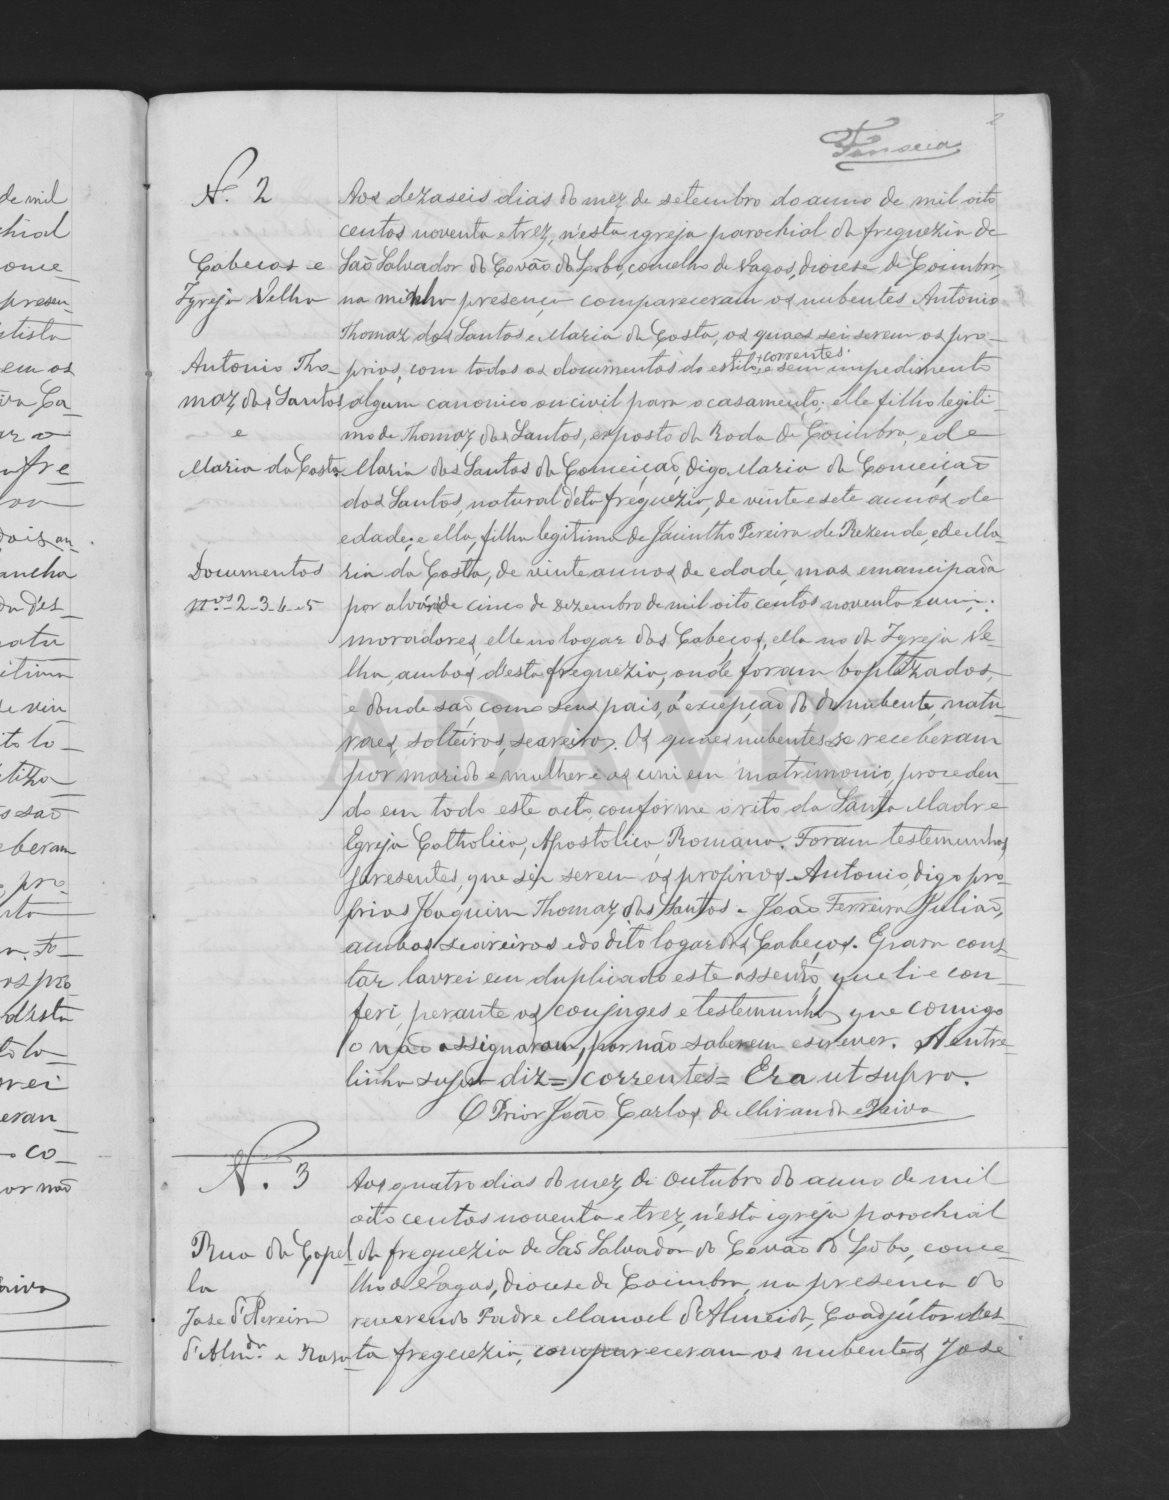 2
Fonseca
N.º 2
Cabeços e
Igreja Velha
Antonio Tho-
maz dos Santos
e
Maria da Costa
Documentos
N.os 2-3-4-5
Aos dezaseis dias do mez de setembro do anno de mil oito
centos noventa e trez, n'esta igreja parochial da freguezia de
São Salvador do Covão do Lobo, concelho de Vagos, diocese de Coimbra,
na minha presença compareceram os nubentes Antonio
Thomaz dos Santos e Maria da Costa, os quaes sei serem os pro-
prios, com todos os documentos do estilo, + correntes. e sem impedimento
algum canonico ou civil para o casamento; elle filho legiti-
mo de Thomaz dos Santos, exposto da Roda de Coimbra, e de
Maria dos Santos da Conceição, digo Maria da Conceição
dos Santos, natural d'esta freguezia, de vinte e sete annos de
edade; e ella, filha legitima de Jacintho Pereira de Rezende, e de Ma-
ria da Costa, de vinte annos de edade, mas emancipada
por alvará de cinco de Dezembro de mil oito centos noventa e um;
moradores, elle no logar dos Cabeços, ella no da Igreja Ve-
lha, ambos d'esta freguezia, onde foram baptizados,
e donde são, como seus pais, á excepção do do nubente, natu-
raes, solteiros, seareiros. Os quaes nubentes se receberam
por marido e mulher e os uni em matrimonio, proceden-
do em todo este acto, conforme o rito da Santa Madre
Egreja Catholica, Apostolica, Romana. Foram testemunhas
presentes, que sei serem os proprios Antonio, digo pro-
prios Joaquim Thomaz dos Santos e João Ferreira Julião,
ambos seareiros e do dito logar dos Cabeços. E para cons-
tar lavrei em duplicado este assento, que li e con-
feri, perante os conjuges e testemunhas que comigo
o não assignaram, por não saberem escrever. A entre-
linha supra diz = correntes = Era ut supra.
O Prior João Carlos de Miranda e Paiva
N.º 3
Rua da Capel-
la
José d' Pereira
d'Almda. e Rosa
Aos quatro dias do mez de Outubro do anno de mil
oito centos noventa e trez, n'esta igreja parochial
da freguezia de São Salvador do Covão do Lobo, conce-
lho de Vagos, diocese de Coimbra, na presença do
reverendo Padre Manoel d'Almeida, Coadjutor d'es-
ta freguezia, compareceram os nubentes José
de mil
chial
presen-
ptista
em os
dois an-
ancha
d'es-
natu
itima
e vin
ito lo-
são
beram
pro-
n. Fo-
os pro
d'esta
to lo-
rei
eran-
co-
or não
aiva
ADAVR